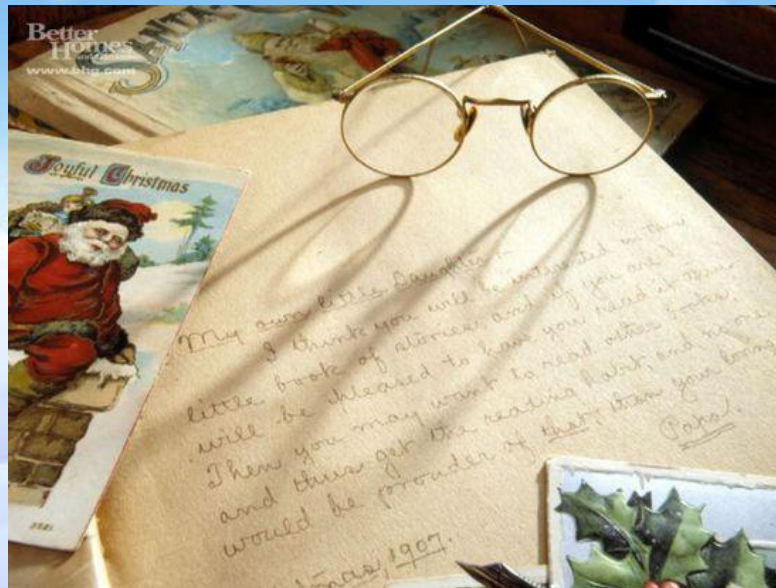 Better
Homes
www.bhg.com
SANTA
Joyful Christmas
My own little Daughter:-
I think you will be interested in this
little book of stories and if you are I
will be pleased to have you read it then.
Then you may want to read other books,
and thus get the reading habit, and no one
would be prouder of that, than your loving
Papa.
1907.